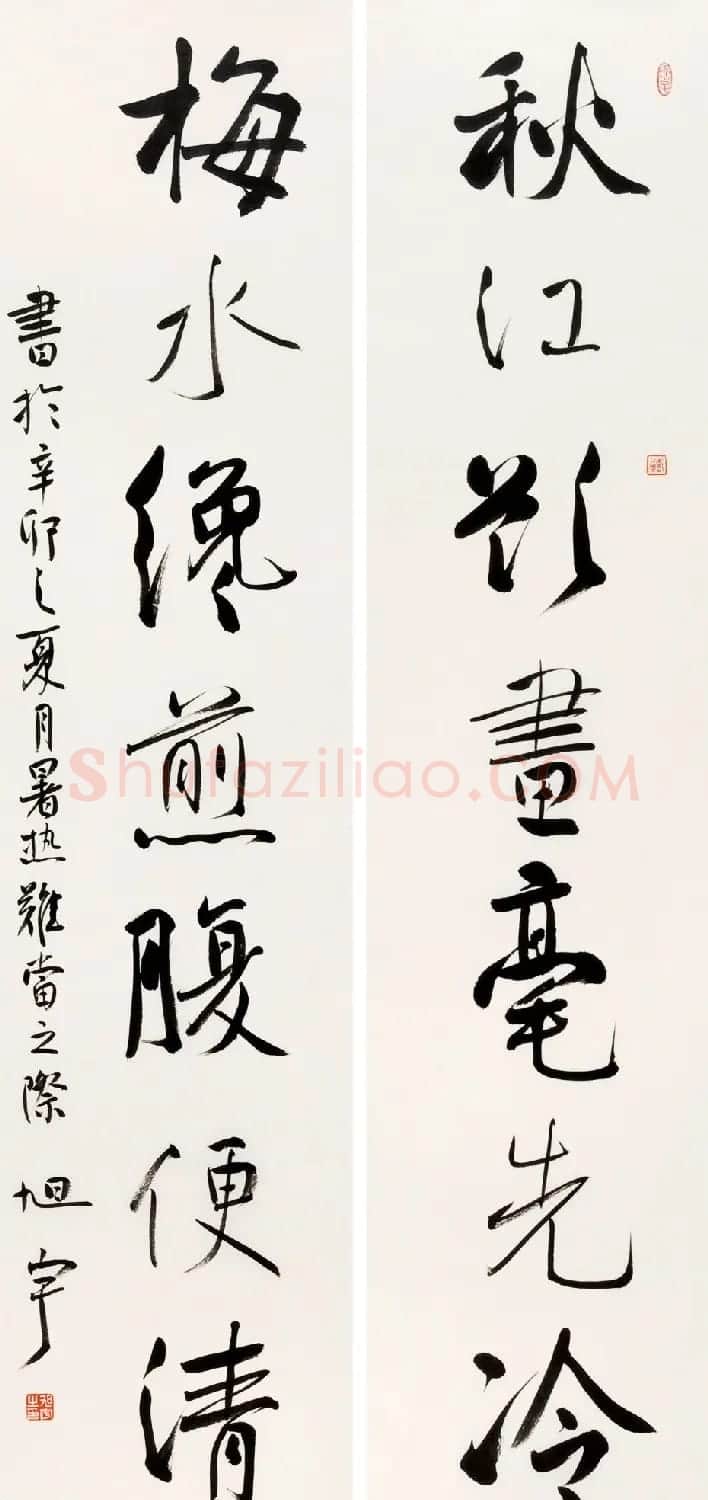 秋江欲畫毫先冷
梅水纔煎腹便清
書於辛卯之夏月暑热難當之際 旭宇
Shufaziliao.COM